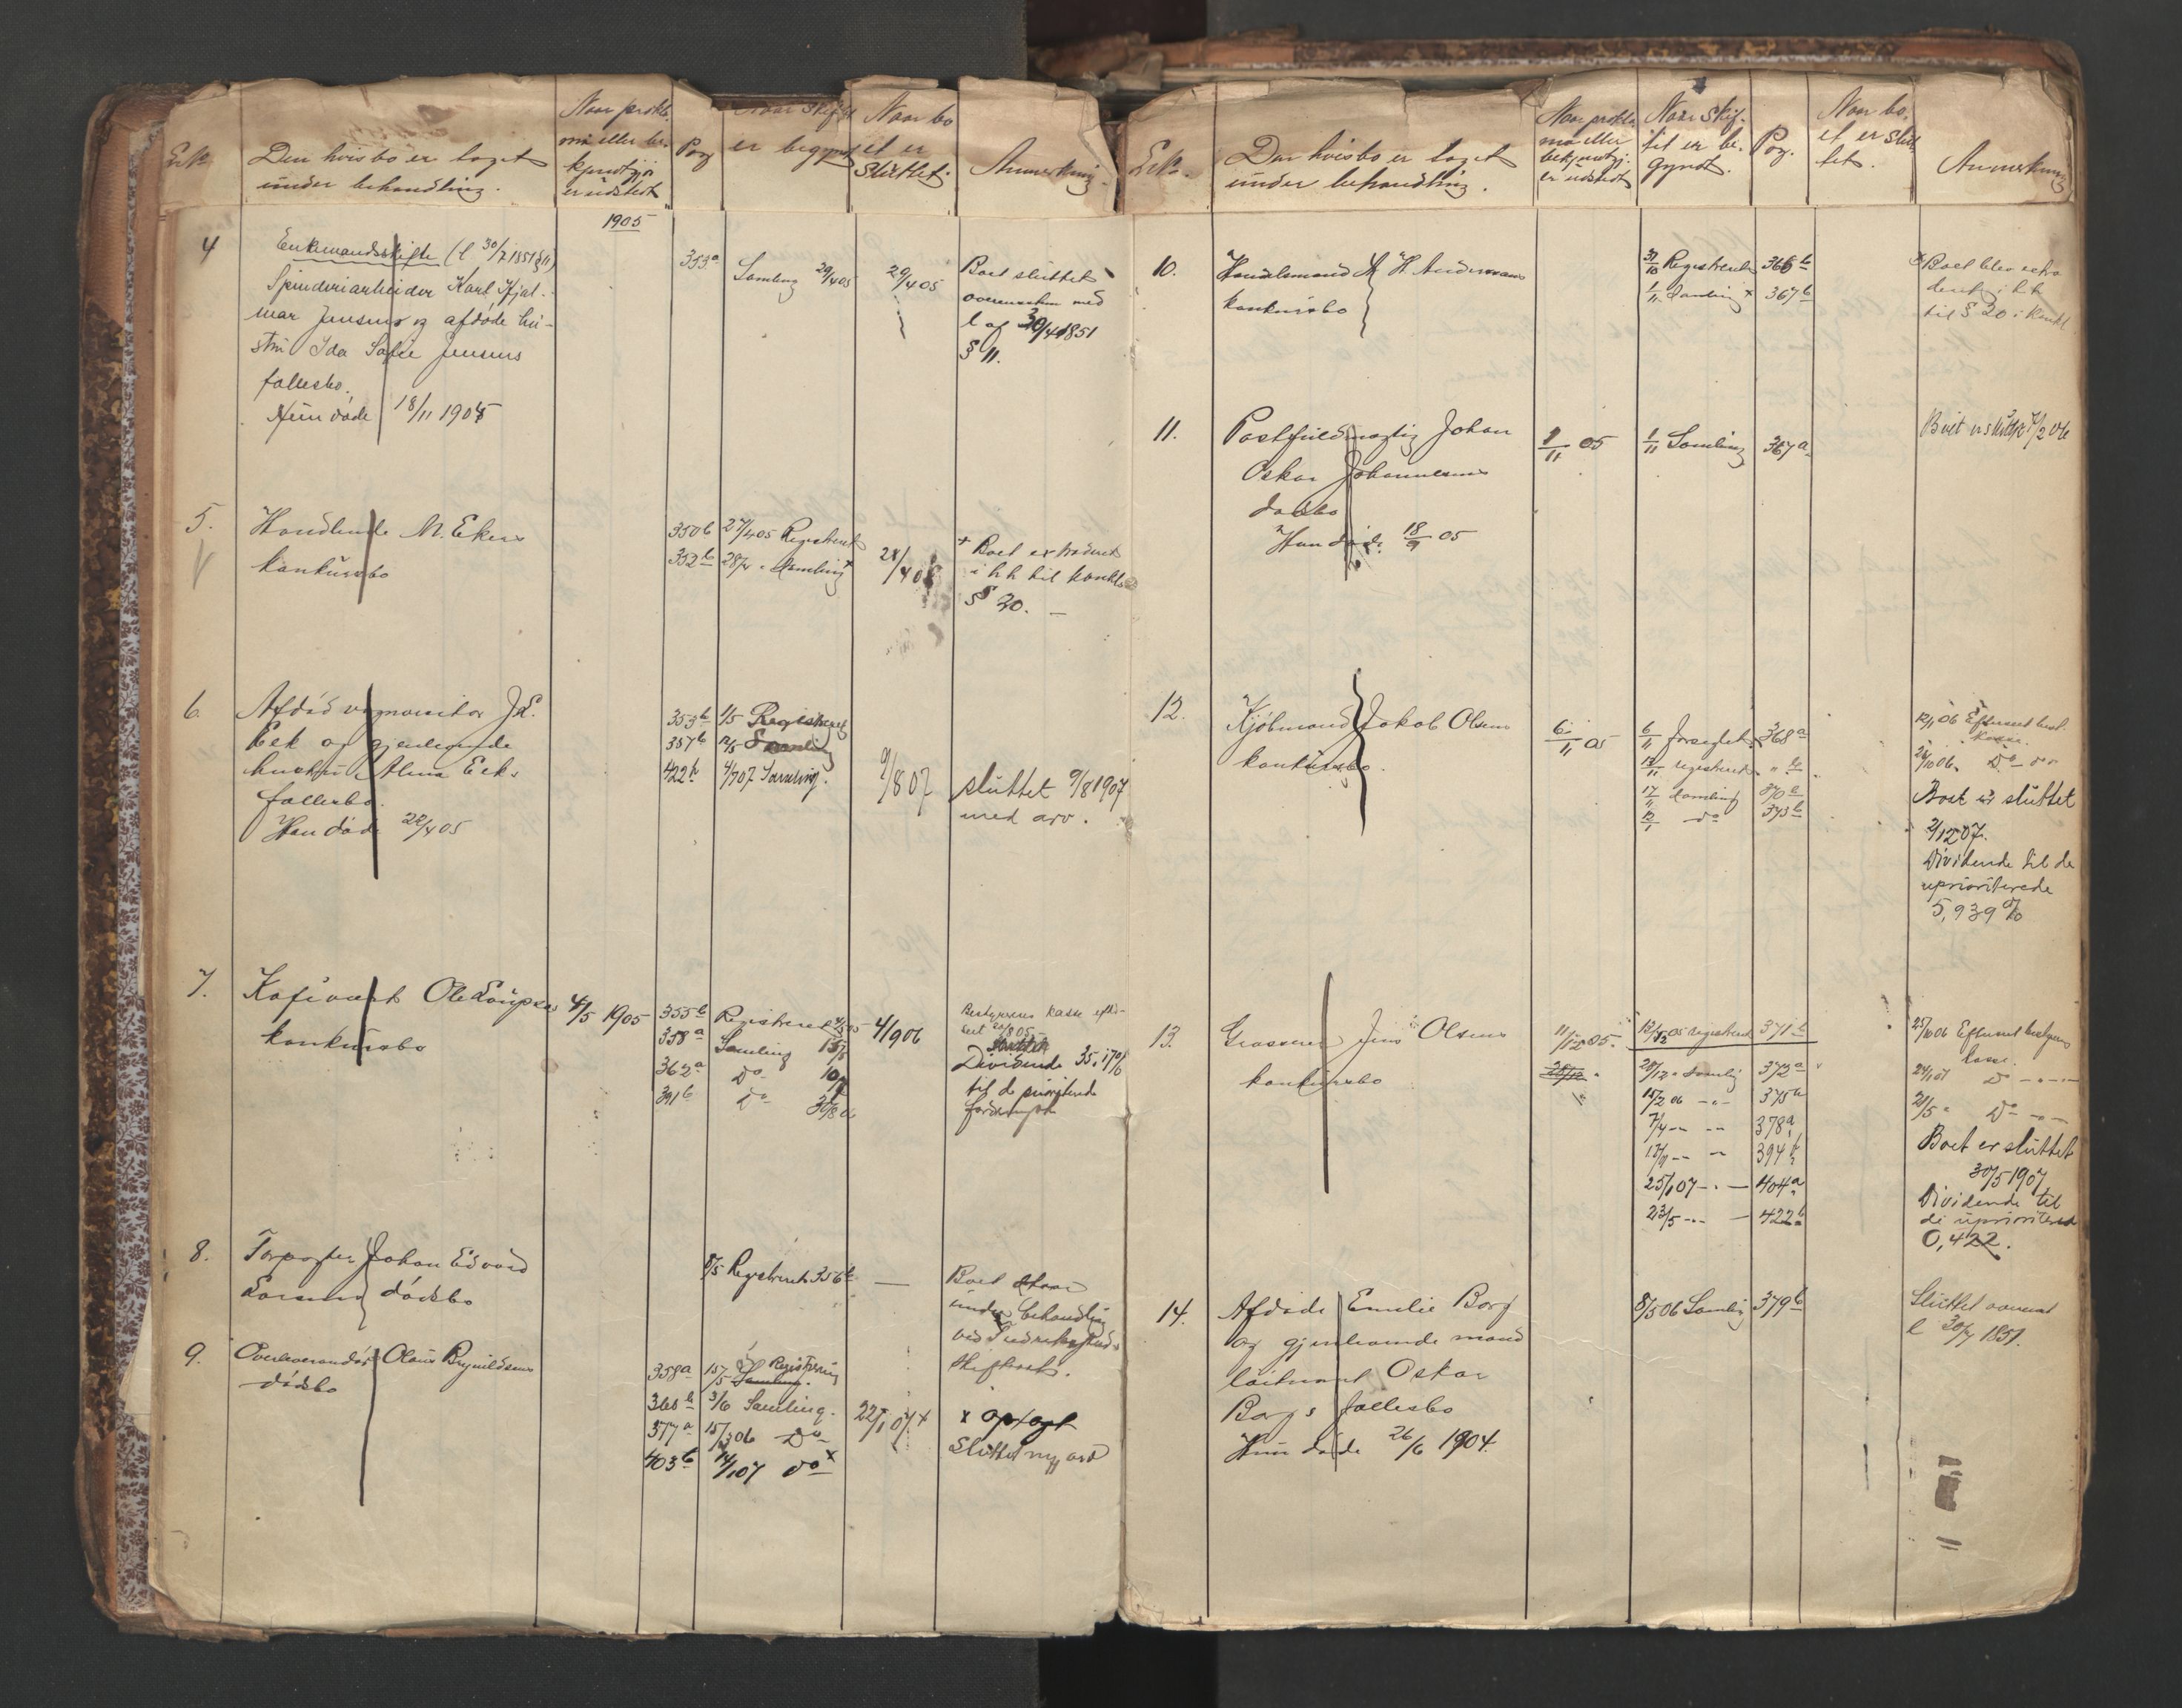 L.No
Den hvis bo er taget
under behandling.
Naar prokla-
ma eller be-
kjendtgjø
er udstedt
Pag
Naar Skiftet
er begyndt
Naar bo
et er
Sluttet.
Anmerkning.
1905
4
Enkemandsskifte (l 30/7 1851 § 11)
Spinderiarbeider Karl Hjal-
mar Jensens og afdøde hu-
stru Ida Sofie Jensens
fællesbo.
Hun døde 18/11 1904
353a
Samling 29/4 05
29/4 05
Boet sluttet
overensstem med
l af 30/4 1851
§ 11.
5.
Handlende M. Ekers
konkursbo
350b 27/4 05 Registreret
352b 28/4 " Samling +
28/4 05
+ Boet extraderet
i hh til konkl
§ 20. —
6.
Afdød
Eek og gjenlevende
hustru Alma Eeks
fællesbo.
Han døde 22/4 05
353b 1/5 Registreret
357b 12/5 Samling
422b 4/7 07 Samling.
9/8 07
sluttet 9/8 1907
med arv.
7.
Kafévært Ole Laupsas
konkursbo
4/5 1905
355b Registreret 4/5 05
358a Samling 15/5
362a Do
391b Do 30/8 06
4/9 06
Bestyrerens kasse efter-
seet
Dividende 35,17%
til de prioriterede
fordringer
8.
Torpagter Johan Edvard
Larsens dødsbo
8/5 Registreret 356b
—
Boet staar
under behandling
ved Fredrikstads
skifteret.
9.
Overleverandør Olaus Brynildsens
dødsbo
358a 15/5 Samling. Registrering
360b 3/6 Samling.
377a 15/3 06 Do
403b 14/1 07 do x
22/1 07 x
x optagt
Sluttet arv
L.No.
Den hvis bo er taget
under behandling.
Naar prokla
ma eller
bekjendtgj.
er udstedt
Naar Skif-
tet er be-
gyndt.
Pag.
Naar bo-
et er Slut
tet.
Anmerkning
10.
Handelsmand M. H. Andersens
konkursbo
31/10 Registreret 366b
1/11 Samling x 367b
x Boet blev extra
deret i hh
til § 20 i konkl.
11.
Postfuldmægtig Johan
Oskar Johannesens
dødsbo
Han døde 18/9 05
9/11 05
1/11 Samling 367a
Boet er sluttet 7/2 06
12.
Kjøbmand Jakob Olsens
konkursbo.
6/11 05
6/11 forseglet 368a
13/11 registreret " b
17/11 Samling 370b
12/1 do 373b
12/1 06 Efterseet best.
kasse.
26/10 06. Do
Boet er sluttet
2/12 07.
Dividende til de
uprioriterede
5,939 %
13.
Grosserer Jens Olsens
konkursbo
11/12 05.
12/12 05 registreret 371b
20/12 " Samling 372a
15/2 06 — " — 375a
7/4 — " — 378a
17/9 — " — 394b
25/1 07 — " — 404a
23/5 — " — 422b
25/10 06 Efterseet bestyrers
kasse.
24/1 07 Do — " —
21/5 " Do — " —
Boet er sluttet
30/5 1907
Dividende til
de uprioriterede
0,422.
14.
Afdøde Emilie Borg
og gjenlevende mand
løitnant Oskar
Borgs fællesbo
Hun døde 26/6 1904.
8/5 06 Samling 379b
Sluttet overensst
l 30/7 1851.